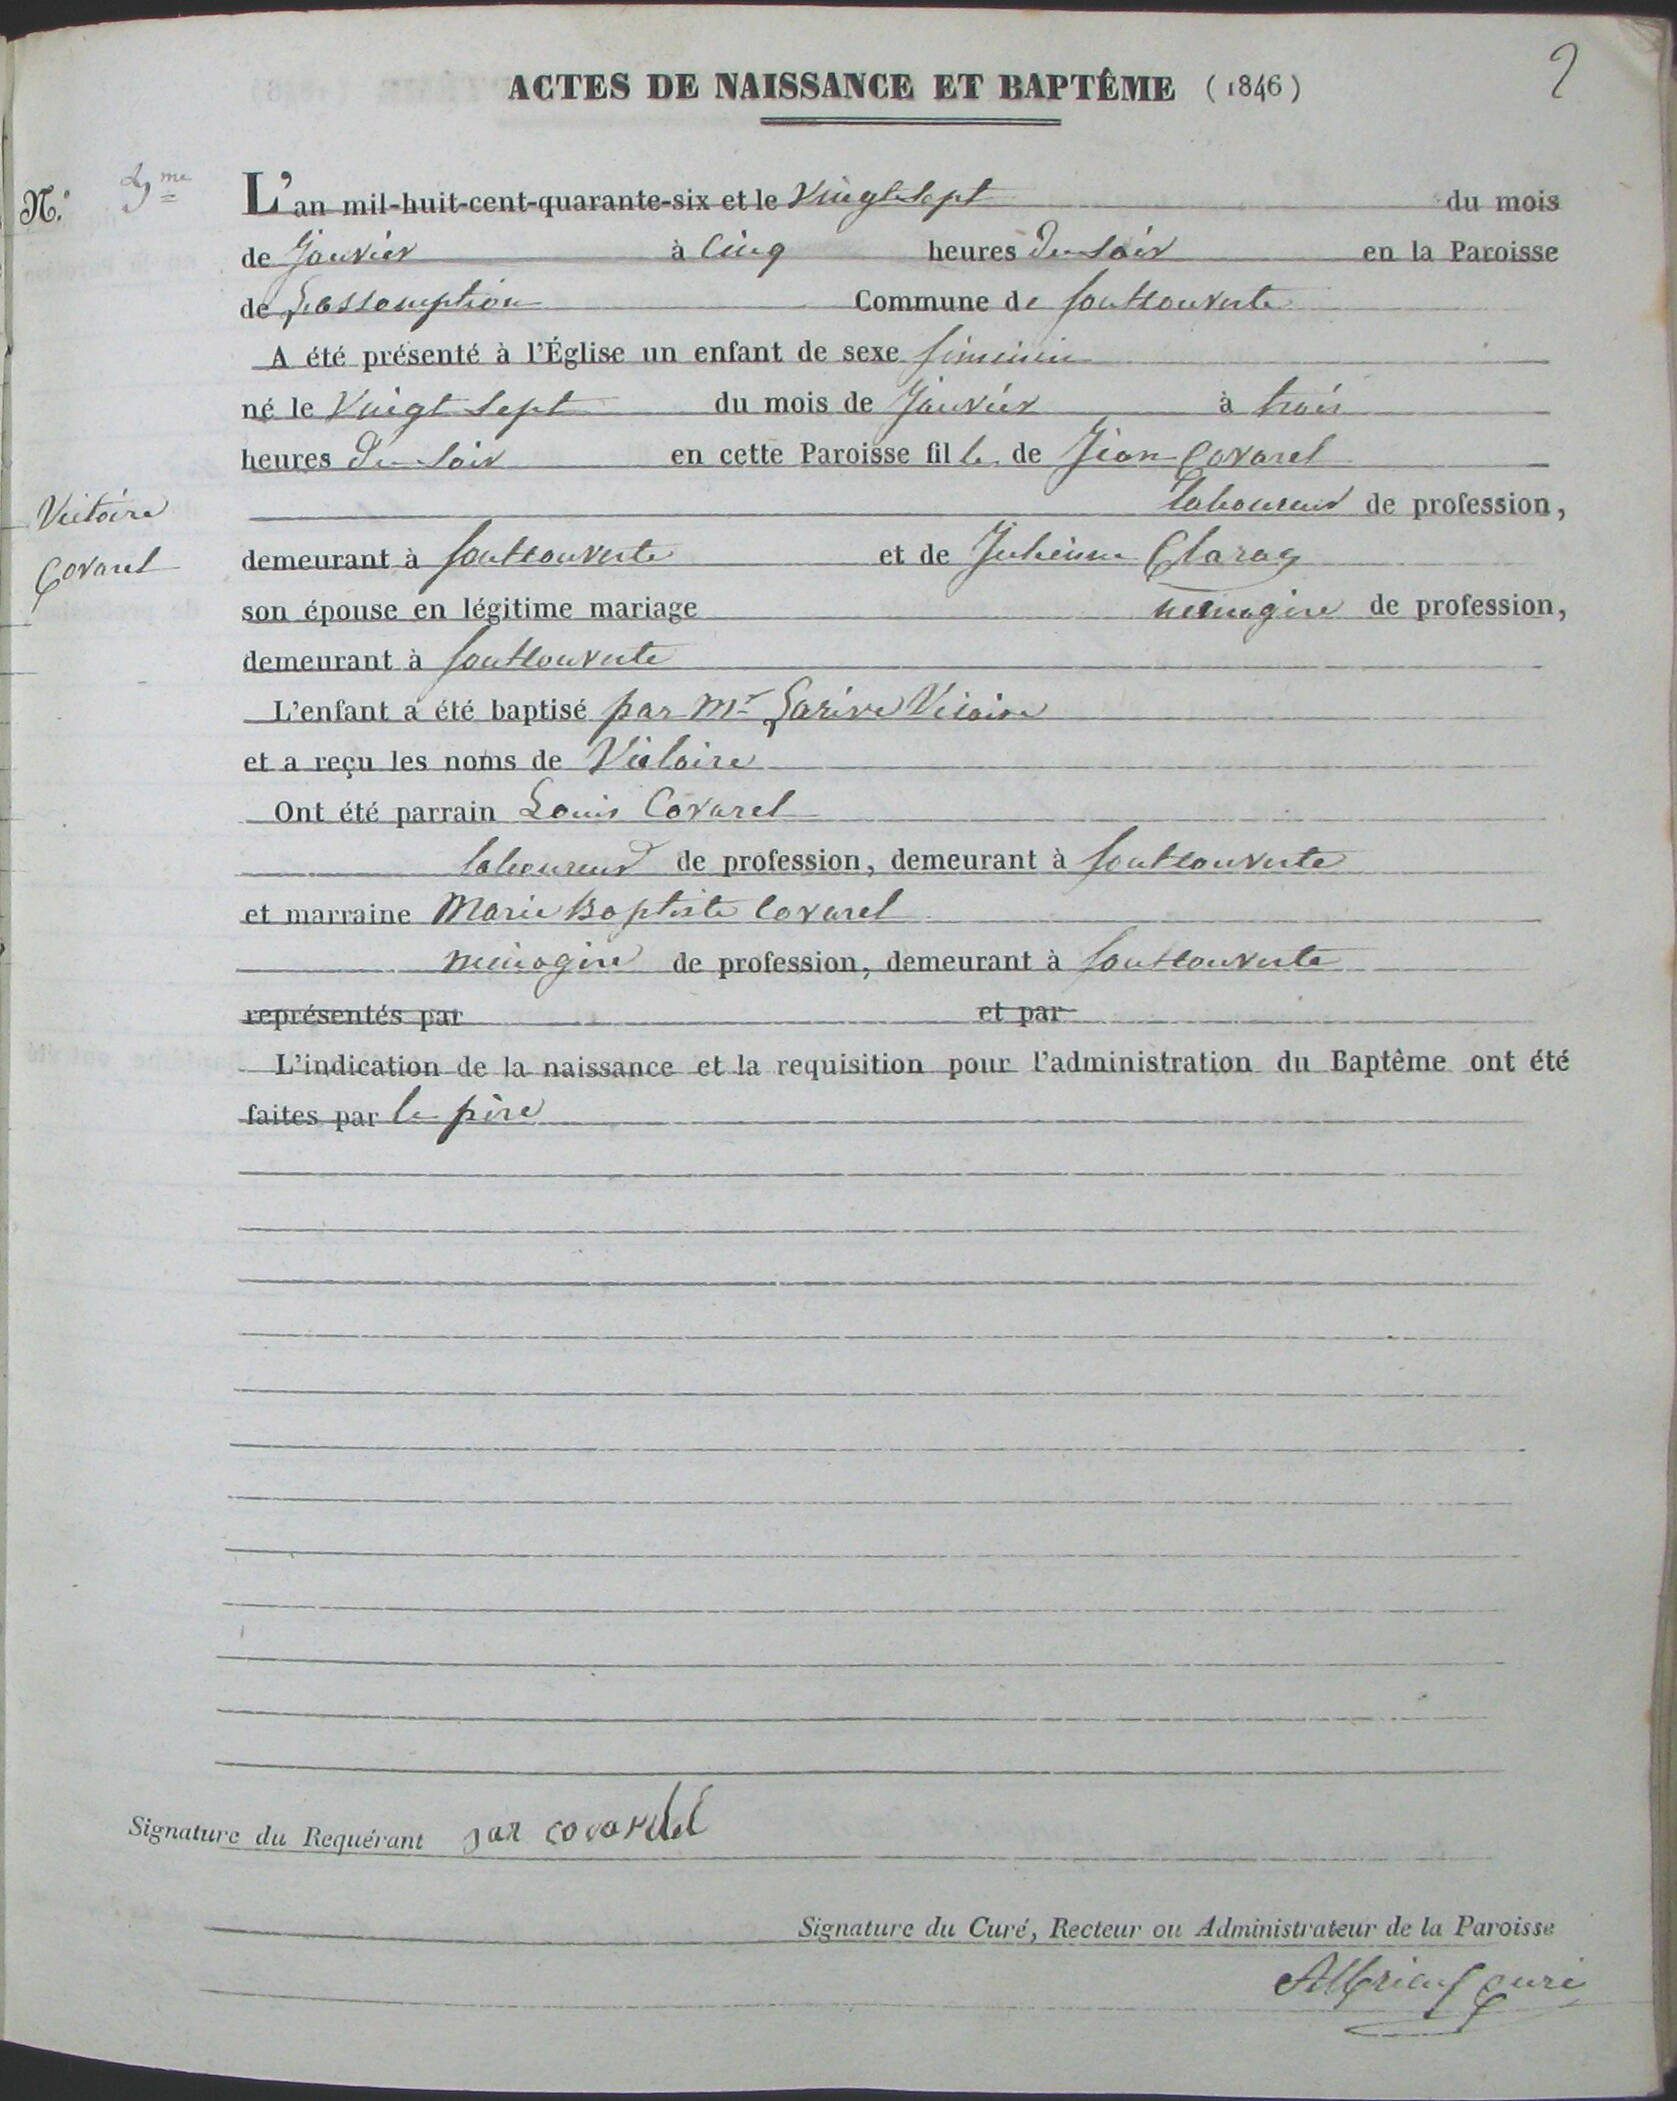 ACTES DE NAISSANCE ET BAPTÊME (1846)
2
N.°
L'an mil-huit-cent-quarante-six et le Vingt Sept du mois
de Janvier à Cinq heures du Soir en la Paroisse
de Lassomption Commune de fontcouverte
A été présenté à l'Église un enfant de sexe feminin
né le Vingt Sept du mois de Janvier à trois
heures du Soir en cette Paroisse fille de Jean Covarel
laboureur de profession,
Victoire
Covarel
demeurant à fontcouverte et de Julienne Claraz
son épouse en légitime mariage menagère de profession,
demeurant à fontcouverte
L'enfant a été baptisé par Mr Larive Vicaire
et a reçu les noms de Victoire
Ont été parrain Louis Covarel
laboureur de profession, demeurant à fontcouverte
et marraine Marie Baptiste Covarel
menagère de profession, demeurant à fontcouverte
représentés par et par
L'indication de la naissance et la requisition pour l'administration du Baptême ont été
faites par le père
Signature du Requérant jan covarel
Signature du Curé, Recteur ou Administrateur de la Paroisse
curé